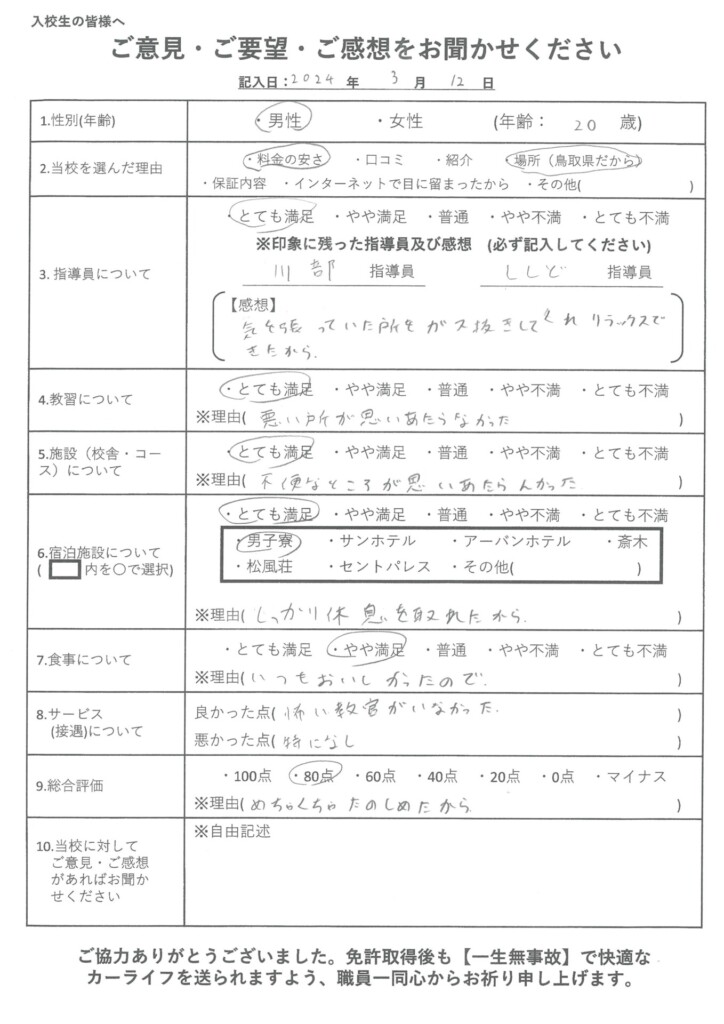 入校生の皆様へ
ご意見・ご要望・ご感想をお聞かせください
記入日：2024 年 3 月 12 日
1.性別(年齢)
・男性 ・女性 (年齢： 20 歳)
2.当校を選んだ理由
・料金の安さ ・口コミ ・紹介 ・場所（鳥取県だから）
・保証内容 ・インターネットで目に留まったから ・その他( )
3. 指導員について
・とても満足 ・やや満足 ・普通 ・やや不満 ・とても不満
※印象に残った指導員及び感想 (必ず記入してください)
川部 指導員 ししど 指導員
【感想】
気を張っていた所をガス抜きしてくれリラックスで
きたから.
4.教習について
・とても満足 ・やや満足 ・普通 ・やや不満 ・とても不満
※理由( 悪い所が思いあたらなかった )
5.施設（校舎・コー
ス）について
・とても満足 ・やや満足 ・普通 ・やや不満 ・とても不満
※理由( 不便なところが思いあたらんかった )
6.宿泊施設について
( 内を〇で選択)
・とても満足 ・やや満足 ・普通 ・やや不満 ・とても不満
・男子寮 ・サンホテル ・アーバンホテル ・斎木
・松風荘 ・セントパレス ・その他( )
※理由( しっかり休息を取れたから. )
7.食事について
・とても満足 ・やや満足 ・普通 ・やや不満 ・とても不満
※理由( いつもおいしかったので. )
8.サービス
(接遇)について
良かった点( 怖い教官がいなかった. )
悪かった点( 特になし )
9.総合評価
・100点 ・80点 ・60点 ・40点 ・20点 ・0点 ・マイナス
※理由( めちゃくちゃたのしめたから. )
10.当校に対して
ご意見・ご感想
があればお聞か
せください
※自由記述
ご協力ありがとうございました。免許取得後も【一生無事故】で快適な
カーライフを送られますよう、職員一同心からお祈り申し上げます。